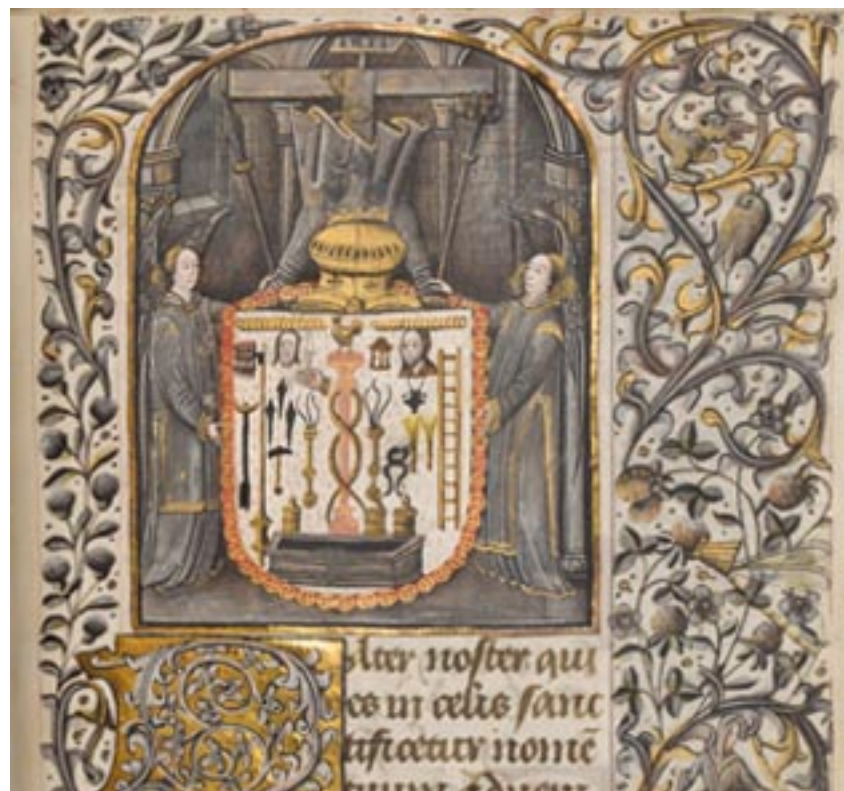 Pater noster qui
es in celis sanc
tificetur nomē
tuum